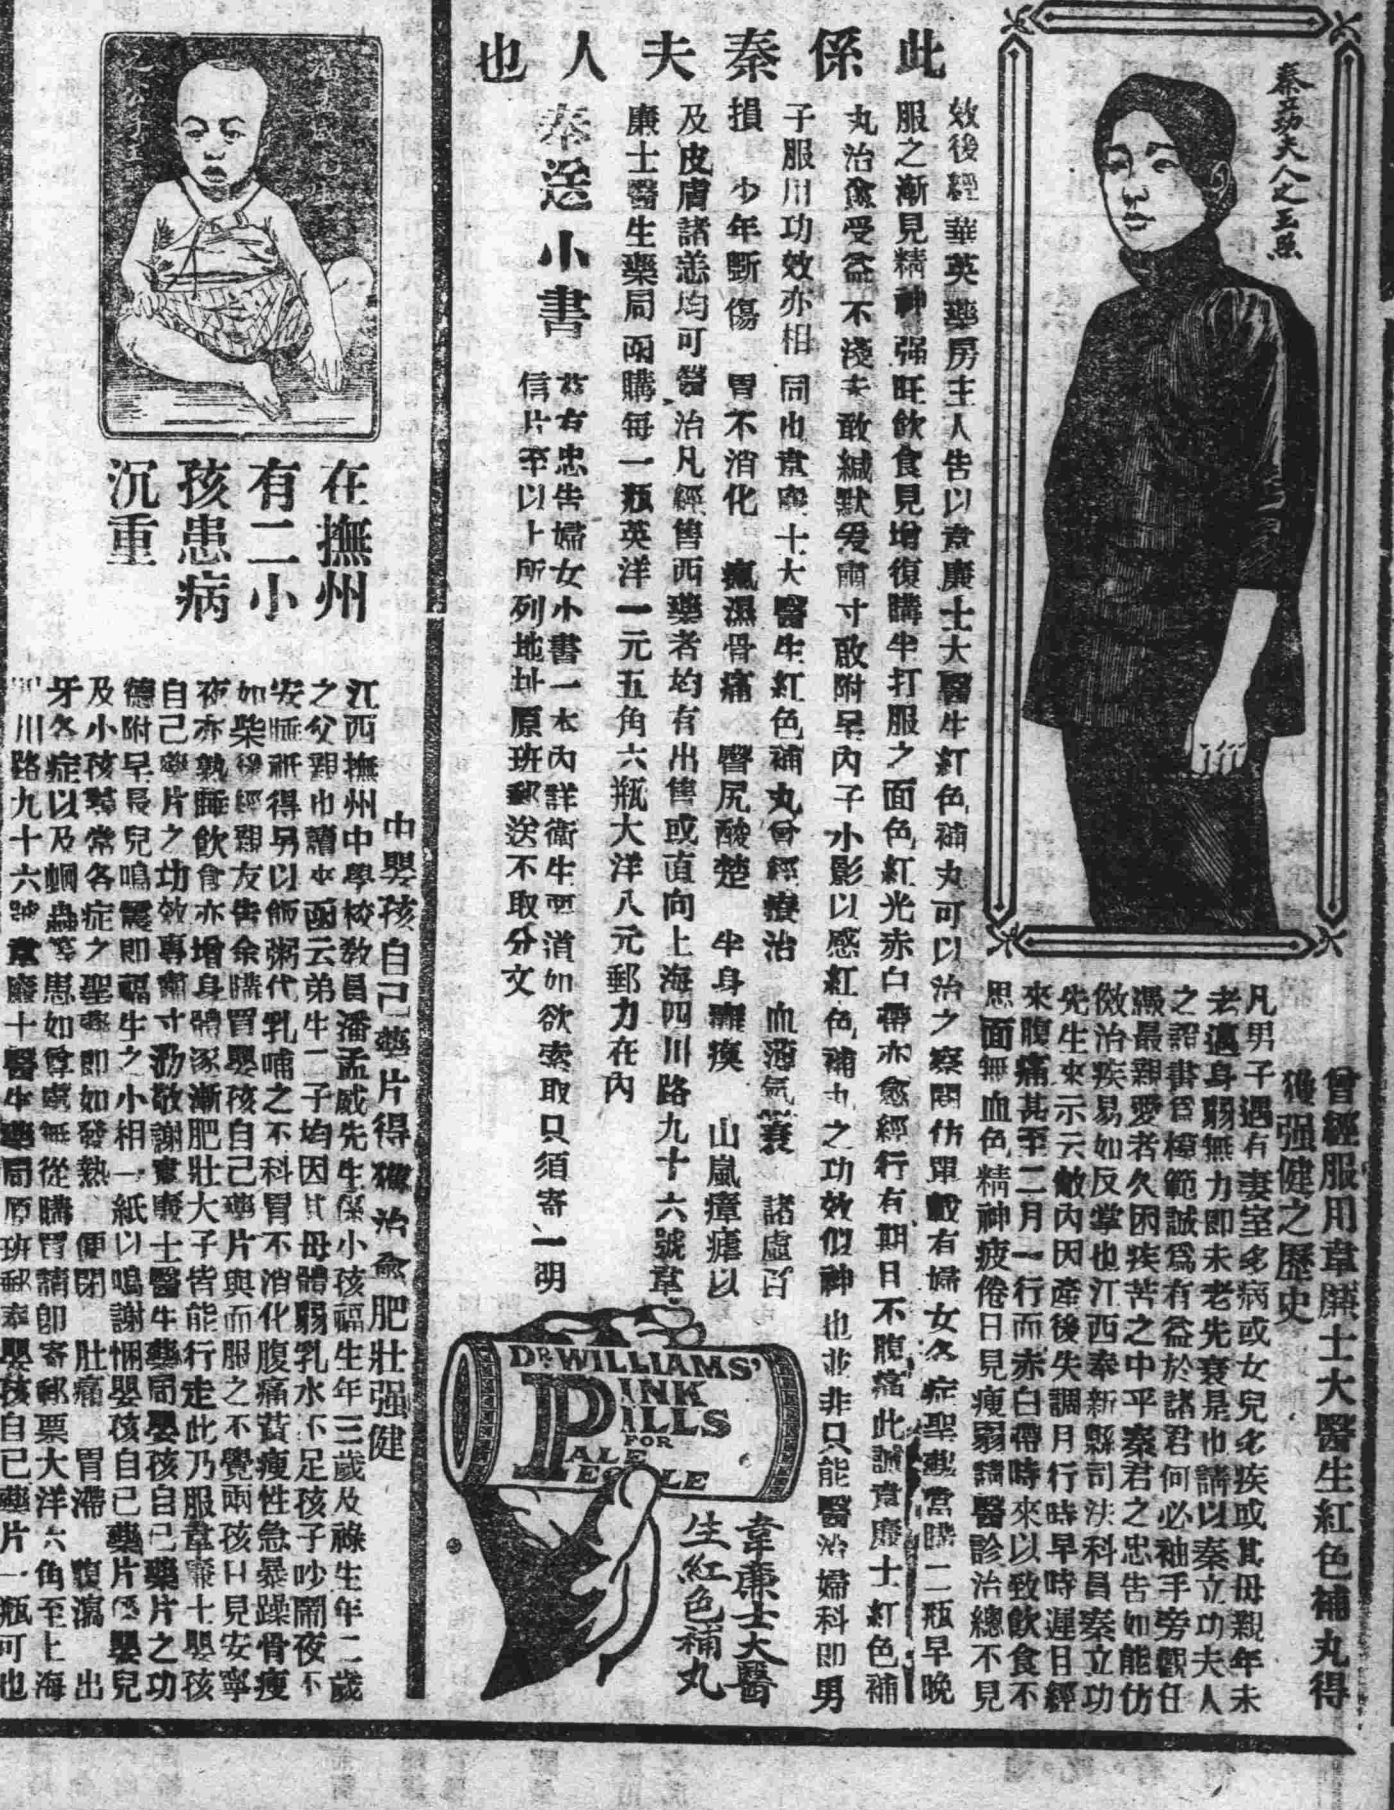 此係秦夫人也
秦立功夫人之玉照
曾經服用韋廉士大醫生紅色補丸得
獲强健之歷史
凡男子遇有妻室多病或女兒多疾或其母親年未
老邁身弱無力即未老先衰是也請以秦立功夫人
之證書爲模範誠爲有益於諸君何必袖手旁觀任
憑最親愛者久困疾苦之中乎秦君之忠告如能仿
傚治疾易如反掌也江西奉新縣司法科昌秦立功
先生來示云敝內因產後失調月行時早時遲目經
來腹痛甚至二月一行而赤白帶時來以致飲食不
思面無血色精神疲倦日見瘦弱請醫診治總不見
效後經華英藥房主人告以韋廉士大醫生紅色補丸可以治之察閱仿單載有婦女各症聖藥當購二瓶早晚
服之漸見精神强旺飲食見增復購半打服之面色紅光赤白帶亦愈經行有期日不腹痛此誠韋廉士紅色補
丸治愈受益不淺夫敢緘默爰肅寸啟附呈內子小影以感紅色補丸之功效似神也並非只能醫治婦科即男
子服用功效亦相同也韋廉士大醫生紅色補丸曾經療治 血薄氣衰 諸虛百
損 少年斲傷 胃不消化 瘋濕骨痛 臀尻酸楚 半身癱瘓 山嵐瘴瘧以
及皮膚諸恙均可醫治凡經售西藥者均有出售或直向上海四川路九十六號韋
廉士醫生藥局函購每一瓶英洋一元五角六瓶大洋八元郵力在內
奉送小書
茲有忠告婦女小書一本內詳衛生要道如欲索取只須寄一明
信片至以上所列地址原班郵送不取分文
DR WILLIAMS'
PINK
PILLS
FOR
PALE
PEOPLE
韋廉士大醫
生紅色補丸
在撫州
有二小
孩患病
沉重
中嬰孩自己藥片得獲治愈肥壯强健
江西撫州中學校教員潘孟威先生係小孩福生年三歲及祿生年二歲
之父親也讀來函云弟生二子均因其母體弱乳水不足孩子吵鬧夜不
安睡祇得另以飾粥代乳哺之不科胃不消化腹痛黃瘦性急暴躁骨瘦
如柴後經親友告余購買嬰孩自己藥片與而服之不覺兩孩日見安寧
夜亦熟睡飲食亦增身體逐漸肥壯大子皆能行走此乃服韋廉士嬰孩
自己藥片之功效專肅寸泐敬謝韋廉士醫生藥局嬰孩自己藥片之功
德附呈長兒鳴震即福生之小相一紙以鳴謝悃嬰孩自己藥片係嬰兒
及小孩尋常各症之聖藥即如發熱 便閉 肚痛 胃滯 腹瀉 出
牙各症以及蛔蟲等患如尊處無從購買請即寄郵票大洋六角至上海
四川路九十六號韋廉士醫生藥局原班郵奉嬰孩自己藥片一瓶可也